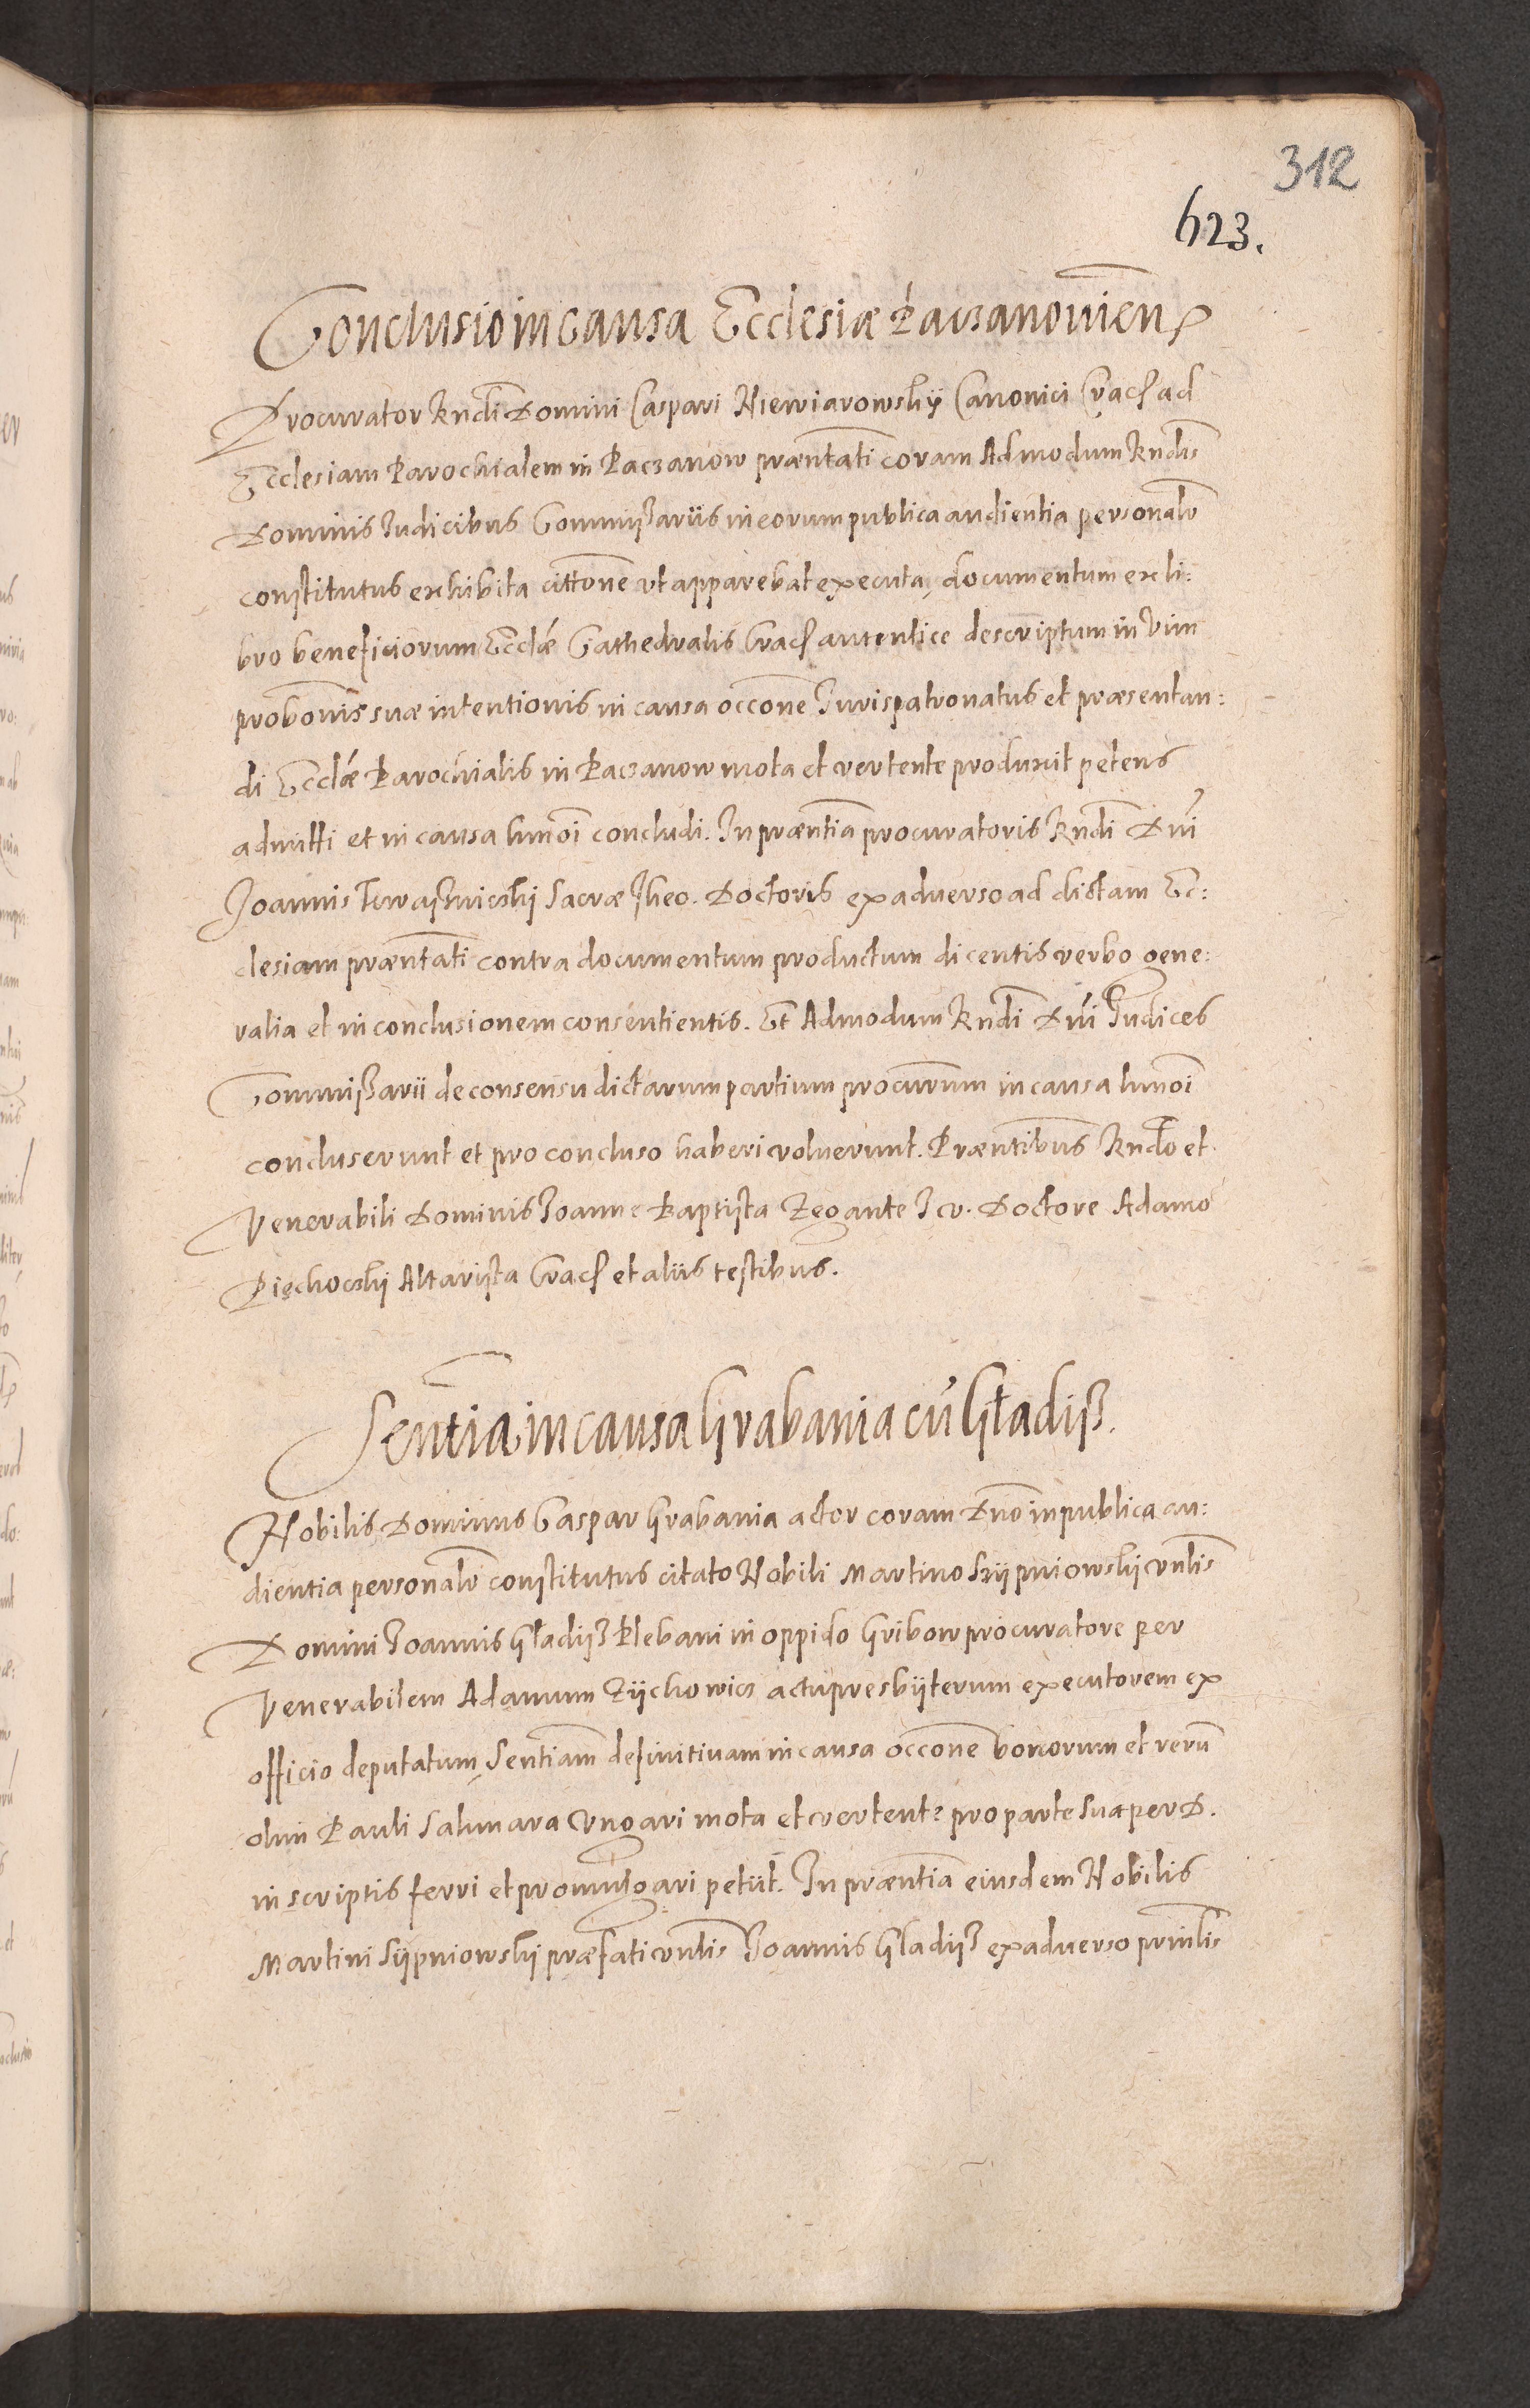 312
623.
Conclusio in causa Ecclesiæ Paczanouien̄
Procurator Rndi Domini Caspari Niewiarowskÿ Canonici Crac̄ ad
Ecclesiam Parochialem in Paczanow præntati coram Admodum Rndis
Dominis Iudicibus Commißariis in eorum publica audientia personalr
constitutus exhibita cittone vt apparebat executa, documentum ex li:
bro beneficiorum Ecclæ Cathedralis Crac̄ autentice descriptum in vim
probonis suæ intentionis in causa occone Iurispatronatus et præsentan:
di Ecclæ Parochialis in Paczanow mota et vertente produxit petens
admitti et in causa hmoi concludi. In præntia procuratoris Rndi Dni
Joannis Sacræ Theo. Doctoris ex aduerso ad dictam Ec:
clesiam præntati contra documentum productum dicentis verbo gene:
ralia et in conclusionem consentientis. Et Admodum Rndi Dni Iudices
Commißarii de consensu dictarum partium procurum in causa hmoi
concluserunt et pro concluso haberi voluerunt. Præntibus Rndo et
Venerabili Dominis Ioanne Baptista Zegante I. v. Doctore Adamo
Piechockÿ Altarista Crac̄ et aliis testibus.
Sentia in causa Grabania cū Gładiß.
Nobilis Dominus Gaspar Grabania actor coram Dno in publica au:
dientia personalr constitutus citato Nobili Martino Sÿpniowskÿ vnlis
Domini Ioannis Gładiß Plebani in oppido Gribow procuratore per
Venerabilem Adamum Zÿchowicz actu presbÿterum executorem ex
officio deputatum, Sentiam definitiuam in causa occone bonorum et rerū
olim Pauli Salmara Vngari mota et vertente pro parte sua per D.
in scriptis ferri et promulgari petiit. In præntia eiusdem Nobilis
Martini Sÿpniowskÿ præfati vnlis Joannis Gladiß ex aduerso prinlis